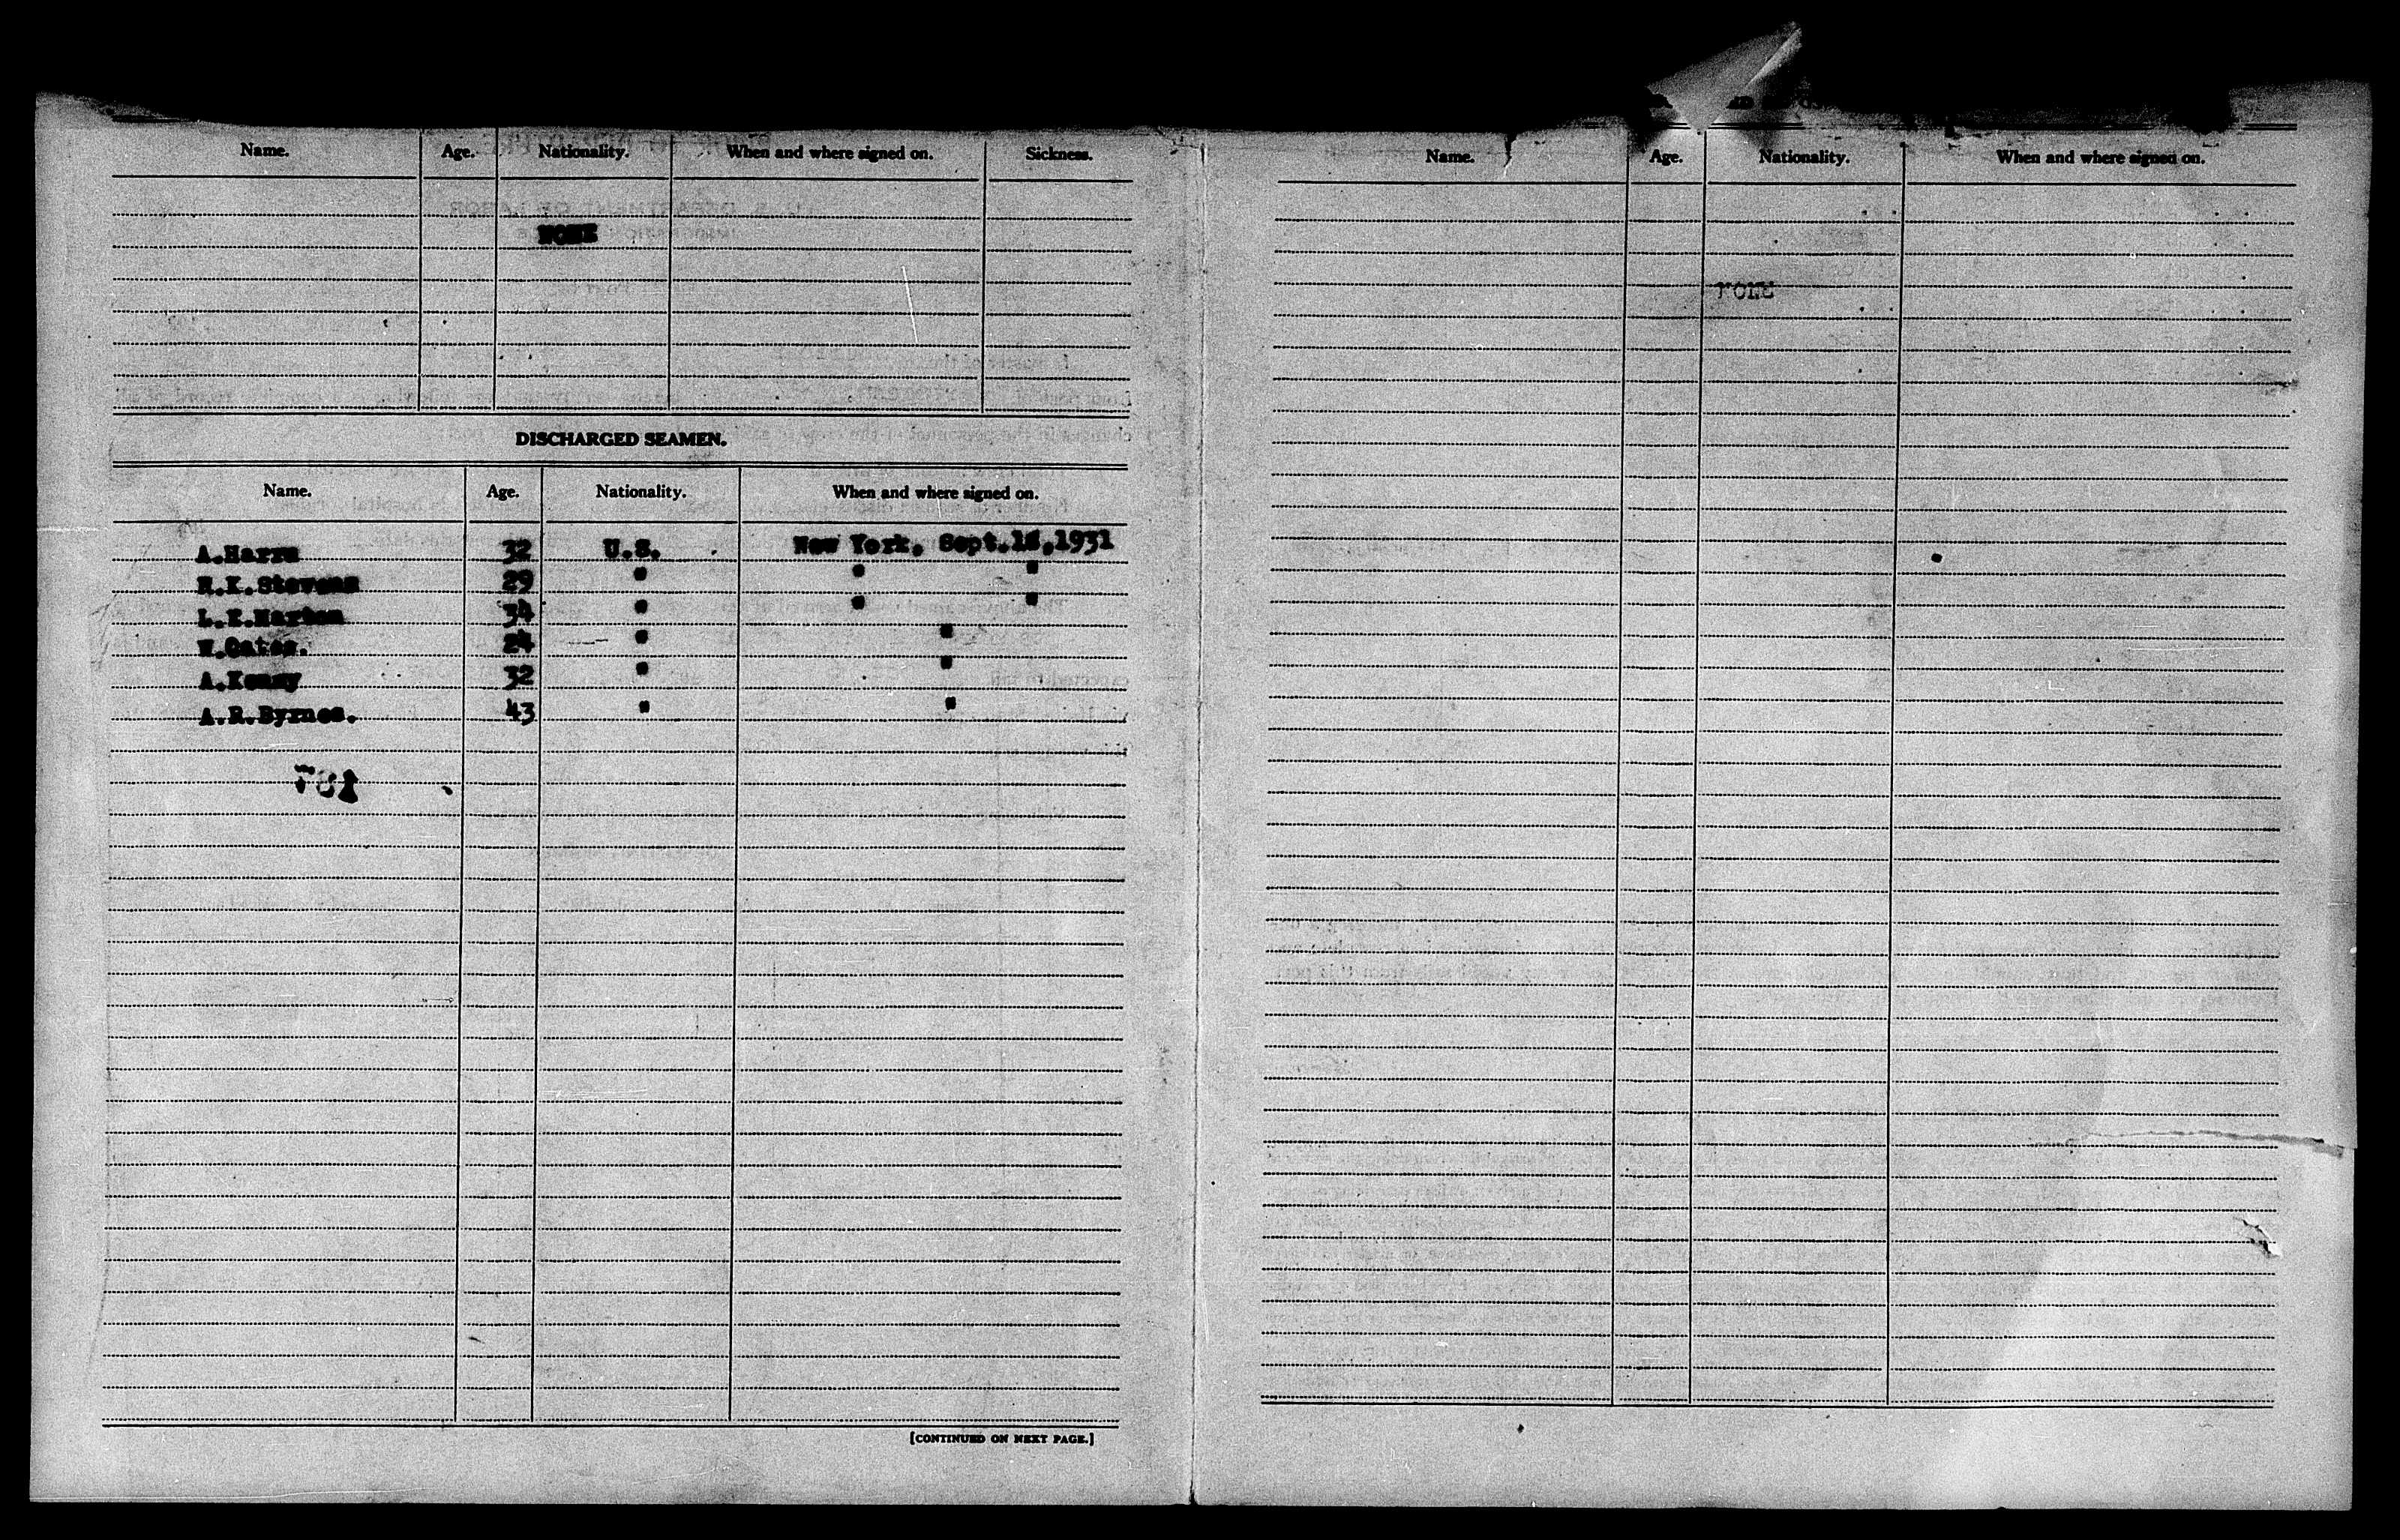 Name. Age. Nationality. When and where signed on. Sickness.
NONE
DISCHARGED SEAMEN.
Name. Age. Nationality. When and where signed on.
A.Harrs 32 U.S. New York, Sept. ,1931
R.K.Stevens 29 " " "
L.E. 34 " " "
W.Oates. 24 " "
A.Kenny 32 " "
A.R.Byrnes. 43 " "
[CONTINUED ON NEXT PAGE.]
Name. Age. Nationality. When and where signed on.
NONE